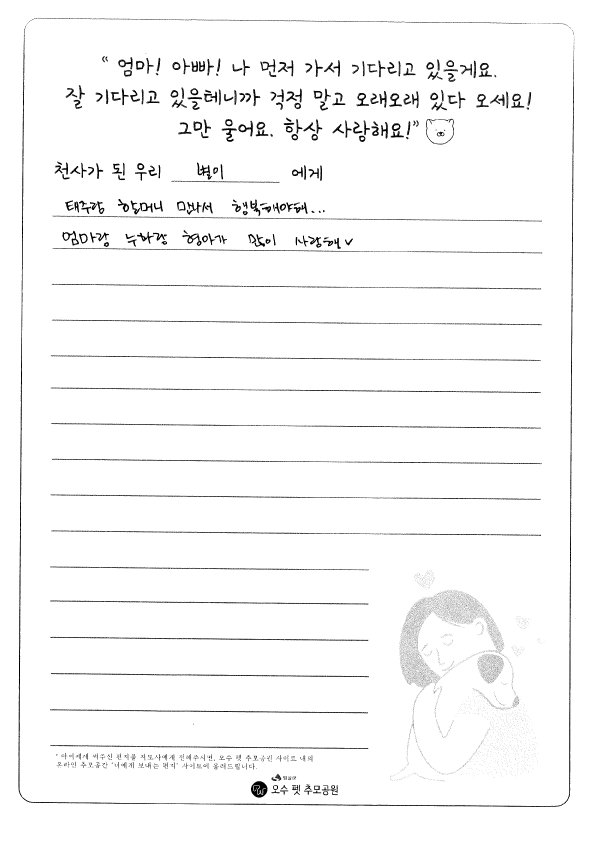 “ 엄마! 아빠! 나 먼저 가서 기다리고 있을게요.
잘 기다리고 있을테니까 걱정 말고 오래오래 있다 오세요!
그만 울어요. 항상 사랑해요!”
천사가 된 우리 별이 에게
태주랑 할머니 만나서 행복해야해...
엄마랑 누나랑 형아가 많이 사랑해
* 아이에게 써주신 편지를 지도사에게 전해주시면, 오수 펫 추모공원 사이트 내의
온라인 추모공간 '너에게 보내는 편지' 사이트에 올려드립니다.
임실군
오수 펫 추모공원